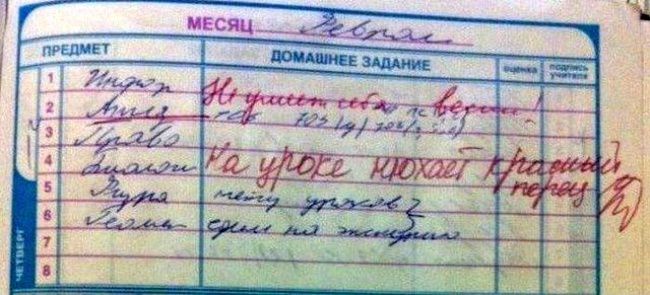 МЕСЯЦ Февраль
ПРЕДМЕТ ДОМАШНЕЕ ЗАДАНИЕ оценка подпись учителя
1 Инфор Не умеет себя вести!
2 Англ
3 Право
4 Биологи На уроке нюхает красный перец
5 Физра нету уроков
6 Геомет едем на экскурсию
7
8
ЧЕТВЕРГ